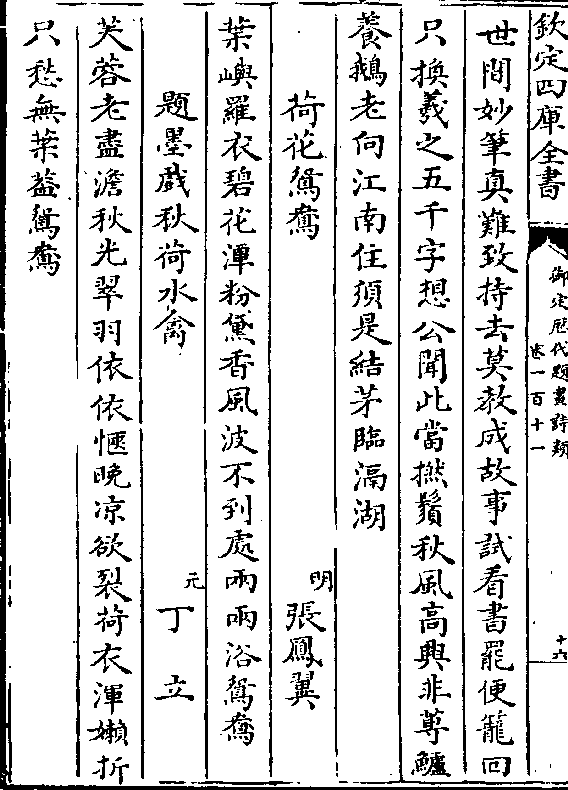 欽定四庫全書
御定歴代題畫詩類
卷一百十一
十六
世間妙筆真難致持去莫教成故事試看書罷便籠回
只換羲之五千字想公聞此當撚鬚秋風高興非蓴鱸
養鵝老向江南住須是結茅臨滆湖
荷花鴛鴦
明 張鳳翼
葉嶼羅衣碧花潭粉黛香風波不到處兩兩浴鴛鴦
題墨戲秋荷水禽
元 丁立
芙蓉老盡澹秋光翠羽依依愜晚凉欲裂荷衣渾嬾折
只愁無葉葢鴛鴦